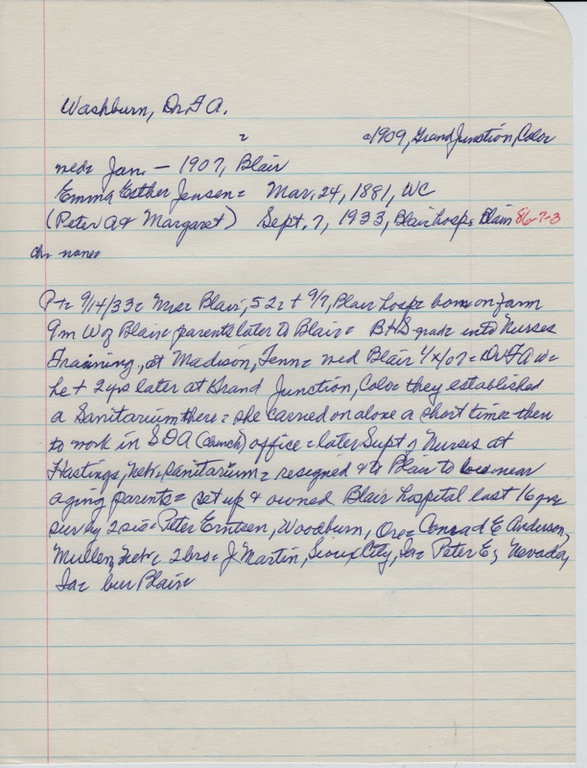 Washburn, Dr. F A.
= c1909, Grand Junction, Color
med= Jan. — 1907, Blair
Emma Esther Jensen= Mar. 24, 1881, WC
(Peter A + Margaret) Sept. 7, 1933, Blair hosp= Blair 86-7-3
ch= none=
P+= 9/14/33= Mrs= Blair, 52= + 9/7, Blair hosp= born on farm
9m W of Blair= parents later to Blair= B+S grad= into Nurses
Training, at Madison, Tenn= med Blair 1/x/07= Dr F A W=
he + 2 yrs later at Grand Junction, Colo= they established
a Sanitarium there= she carried on alone a short time= then
to work in SDA (church) office= later Supt of Nurses at
Hastings, Neb=, Sanitarium= resigned & to Blair to be near
aging parents= set up & owned Blair hospital last 16 yrs=
sur by 2 sis= Peter Erntsen, Woodburn, Ore= Conrad E Anderson,
Mullen, Neb= 2 bro= J. Martin, Sioux City, Ia= Peter E, Nevada,
Ia= bur Blair=